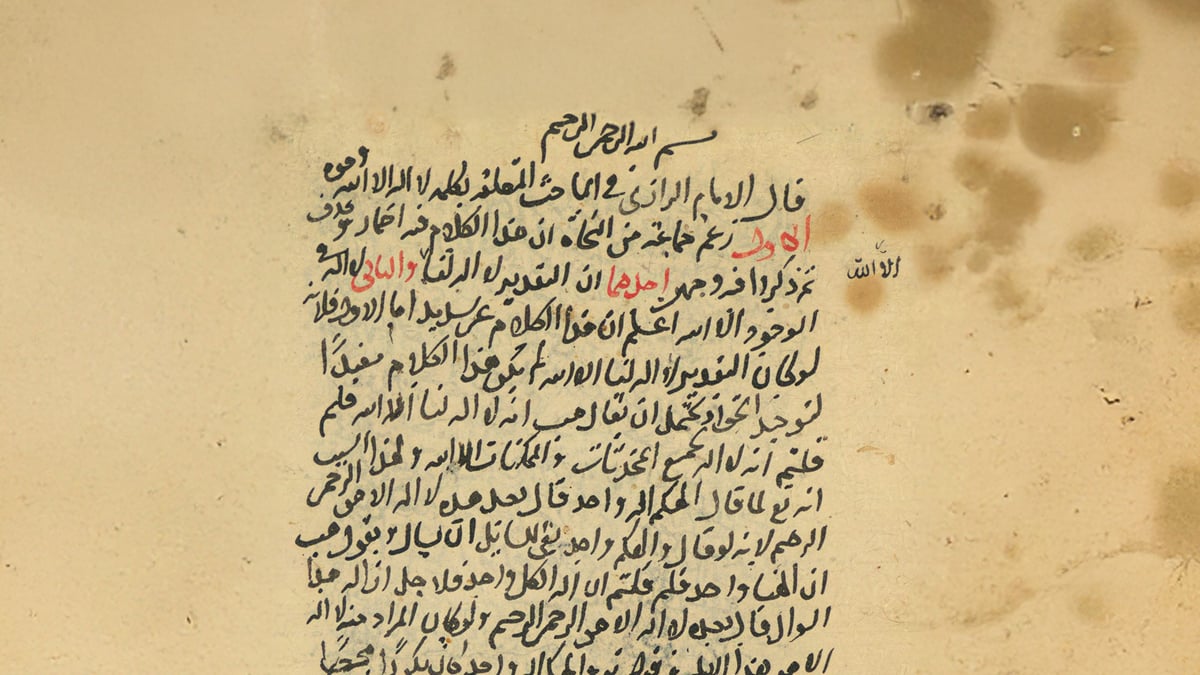 بسم الله الرحمن الرحيم
قال الامام الرازى فى المباحث المتعلقة بكلمة لا اله الا الله وجوه
الاول زعم جماعة من النحاة ان هذا الكلام فيه اضمار وحذف
ثم ذكروا فيه وجهين احدهما ان التقدير لا اله لنا والثانى لا اله فى
الا الله
الوجود الا الله اعلم ان هذا الكلام غير سديد اما الاول فلانه
لو كان التقدير لا اله لنا الا الله لم يكن هذا الكلام مفيدًا
لتوحيد يحتمل ان يقال هب انه لا اله لنا الا الله فلم
قلتم انه لا اله لجميع المحدثات والممكنات الا الله ولهذا السبب
انه تع لما قال الهكم اله واحد قال بعده لا اله الا هو الرحمن
الرحيم لانه لو قال والهكم واحد بقى للسايل ان يسال ويقول هب
ان الهنا واحد فلم قلتم ان اله الكل واحد فلاجل ازاله هذا
السوال قال بعده لا اله الا هو الرحمن الرحيم ولو كان المراد منه لا اله
الا هو هذا واحد